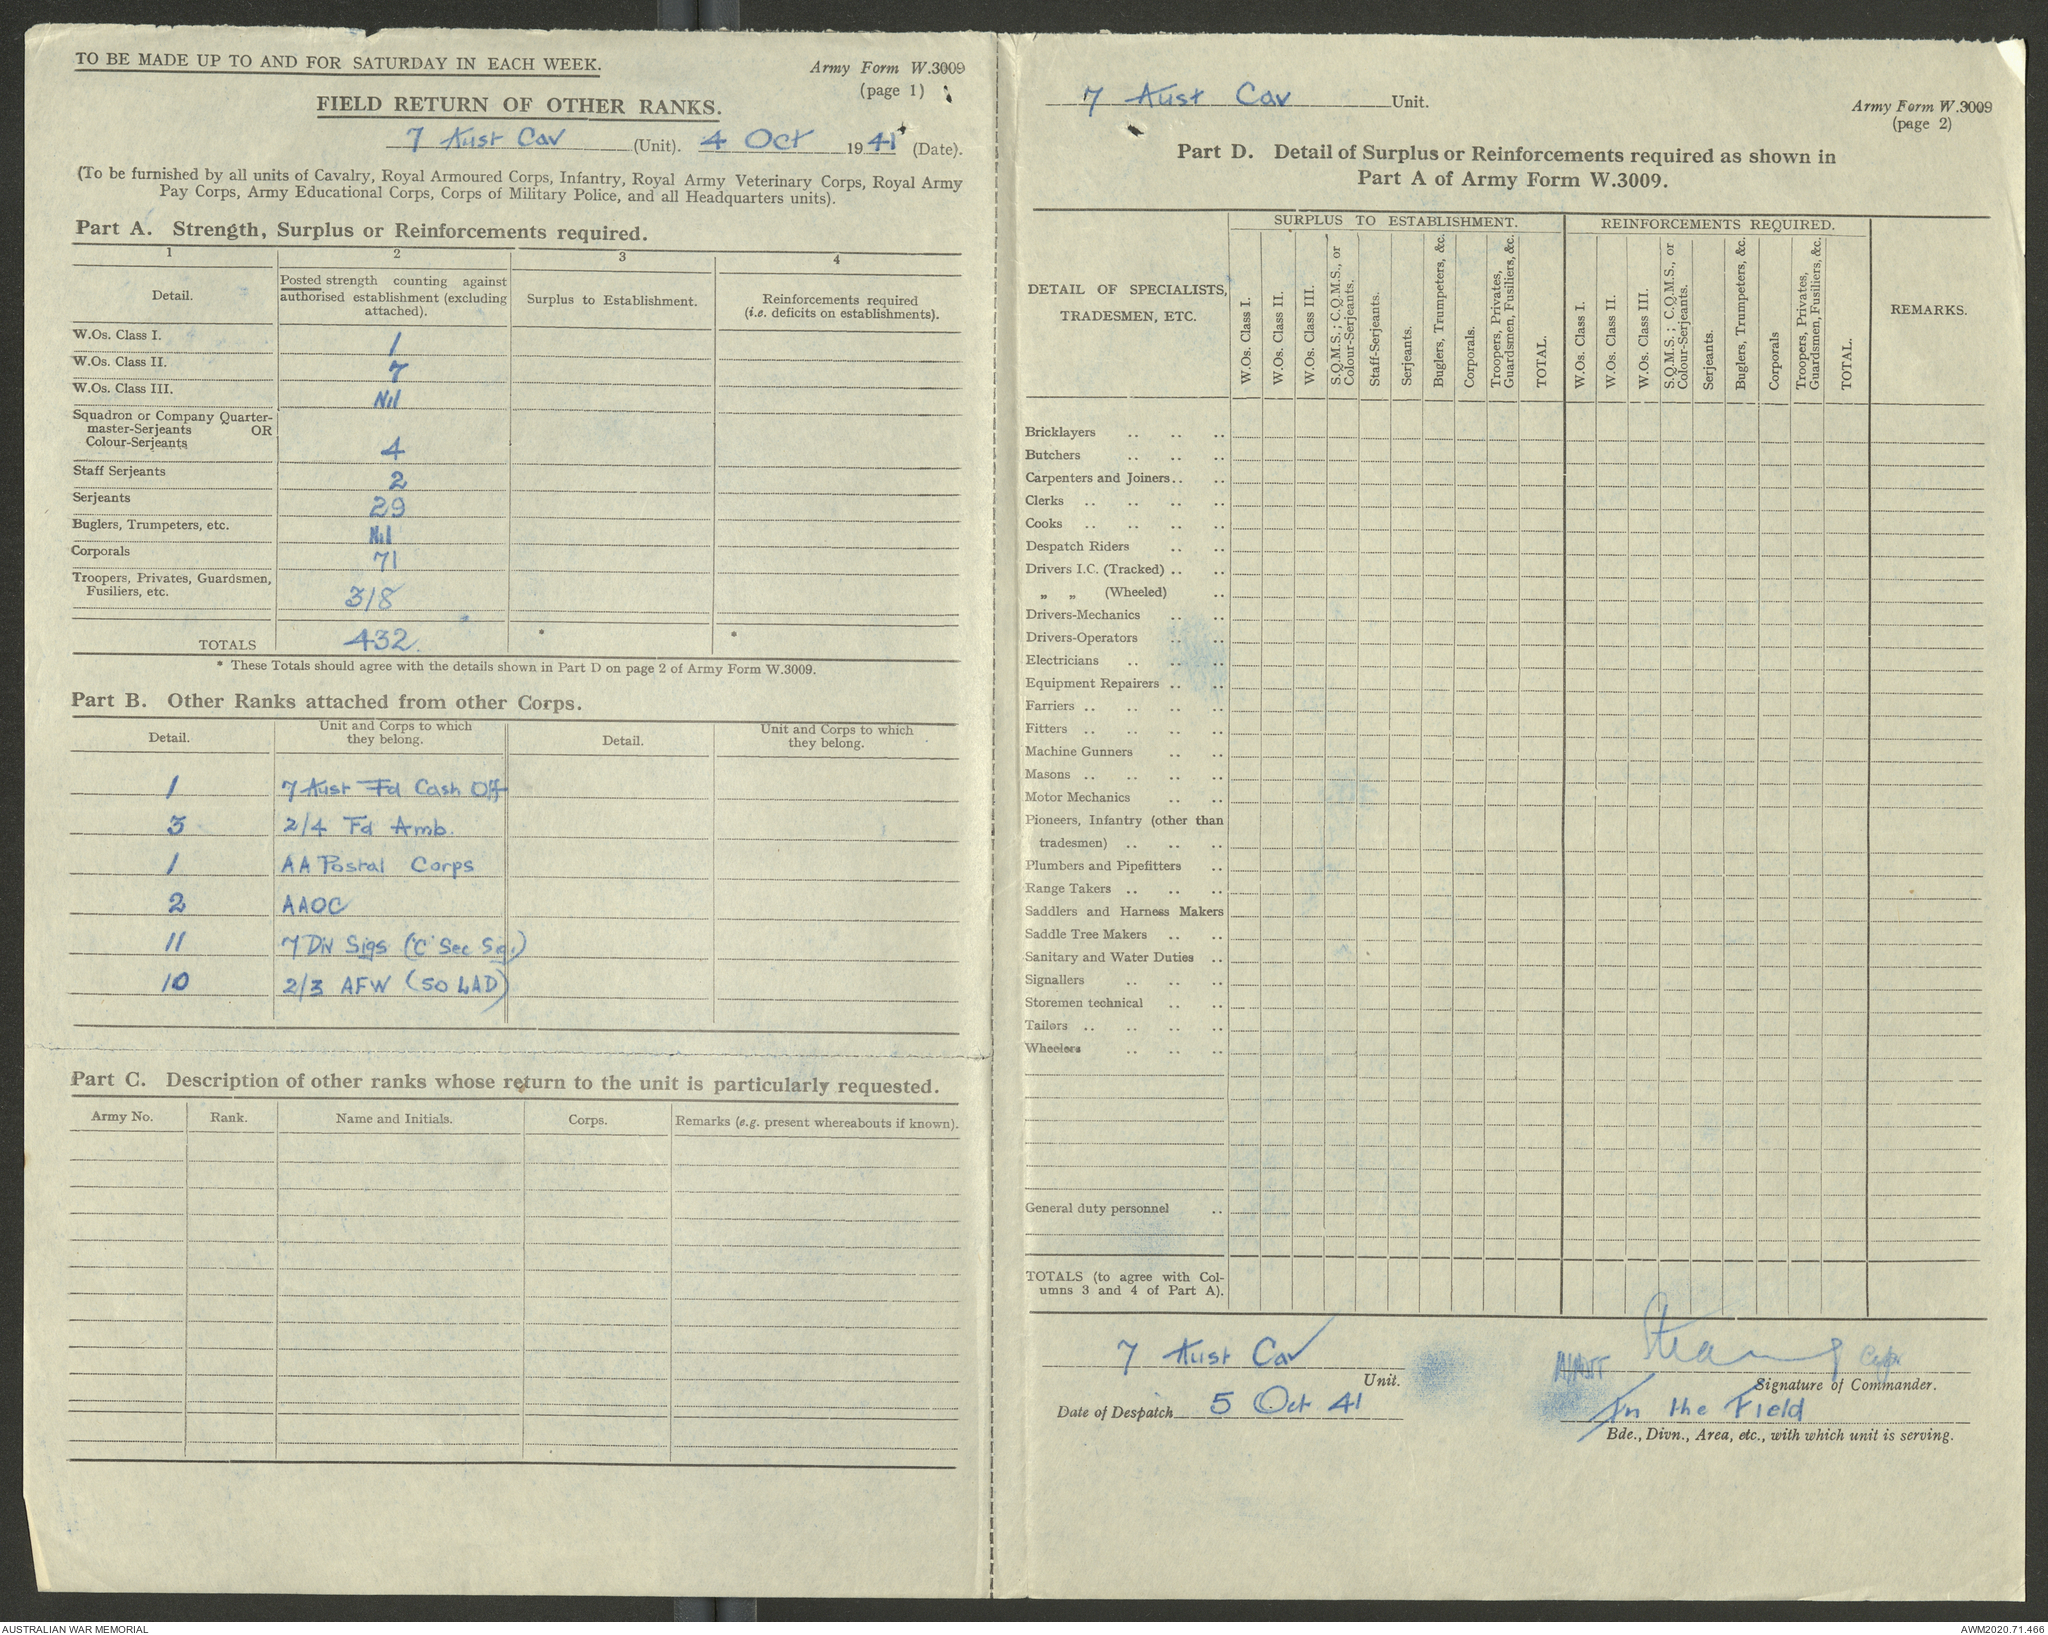 TO BE MADE UP TO AND FOR SATURDAY IN EACH WEEK.
Army Form W.3009
(page 1)
FIELD RETURN OF OTHER RANKS.
7 Aust Cav (Unit). 4 Oct 1941 (Date).
(To be furnished by all units of Cavalry, Royal Armoured Corps, Infantry, Royal Army Veterinary Corps, Royal Army
Pay Corps, Army Educational Corps, Corps of Military Police, and all Headquarters units).
Part A. Strength, Surplus or Reinforcements required.
1 2 3 4
Detail.
Posted strength counting against
authorised establishment (excluding
attached).
Surplus to Establishment.
Reinforcements required
(i.e. deficits on establishments).
W.Os. Class I. 1
W.Os. Class II. 7
W.Os. Class III. Nil
Squadron or Company Quarter-
master-Serjeants OR
Colour-Serjeants 4
Staff Serjeants 2
Serjeants 29
Buglers, Trumpeters, etc. Nil
Corporals 71
Troopers, Privates, Guardsmen,
Fusiliers, etc. 318
TOTALS 432. * *
* These Totals should agree with the details shown in Part D on page 2 of Army Form W.3009.
Part B. Other Ranks attached from other Corps.
Detail.
Unit and Corps to which
they belong.
Detail.
Unit and Corps to which
they belong.
1 7 Aust Fd Cash Off
3 2/4 Fd Amb.
1 AA Postal Corps
2 AAOC
11 7 Div Sigs ('C' Sec Sig.)
10 2/3 AFW (50 LAD)
Part C. Description of other ranks whose return to the unit is particularly requested.
Army No. Rank. Name and Initials. Corps. Remarks (e.g. present whereabouts if known).
7 Aust Cav Unit.
Army Form W.3009
(page 2)
Part D. Detail of Surplus or Reinforcements required as shown in
Part A of Army Form W.3009.
DETAIL OF SPECIALISTS,
TRADESMEN, ETC.
SURPLUS TO ESTABLISHMENT.
W.Os. Class I.
W.Os. Class II.
W.Os. Class III.
S.Q.M.S.; C.Q.M.S., or
Colour-Serjeants.
Staff-Serjeants.
Serjeants.
Buglers, Trumpeters, &c.
Corporals.
Troopers, Privates,
Guardsmen, Fusiliers, &c.
TOTAL.
REINFORCEMENTS REQUIRED.
W.Os. Class I.
W.Os. Class II.
W.Os. Class III.
S.Q.M.S.; C.Q.M.S., or
Colour-Serjeants.
Serjeants.
Buglers, Trumpeters, &c.
Corporals
Troopers, Privates,
Guardsmen, Fusiliers, &c.
TOTAL.
REMARKS.
Bricklayers .. .. ..
Butchers .. .. ..
Carpenters and Joiners.. ..
Clerks .. .. .. ..
Cooks .. .. .. ..
Despatch Riders .. ..
Drivers I.C. (Tracked) .. ..
„ „ (Wheeled) ..
Drivers-Mechanics .. ..
Drivers-Operators .. ..
Electricians .. .. ..
Equipment Repairers .. ..
Farriers .. .. .. ..
Fitters .. .. .. ..
Machine Gunners .. ..
Masons .. .. .. ..
Motor Mechanics .. ..
Pioneers, Infantry (other than
tradesmen) .. .. ..
Plumbers and Pipefitters ..
Range Takers .. .. ..
Saddlers and Harness Makers
Saddle Tree Makers .. ..
Sanitary and Water Duties ..
Signallers .. .. ..
Storemen technical .. ..
Tailors .. .. .. ..
Wheelers .. .. ..
General duty personnel ..
TOTALS (to agree with Col-
umns 3 and 4 of Part A).
7 Aust Cav
Unit.
Capt
Signature of Commander.
Date of Despatch 5 Oct 41
In the Field
Bde., Divn., Area, etc., with which unit is serving.
AUSTRALIAN WAR MEMORIAL
AWM2020.71.466